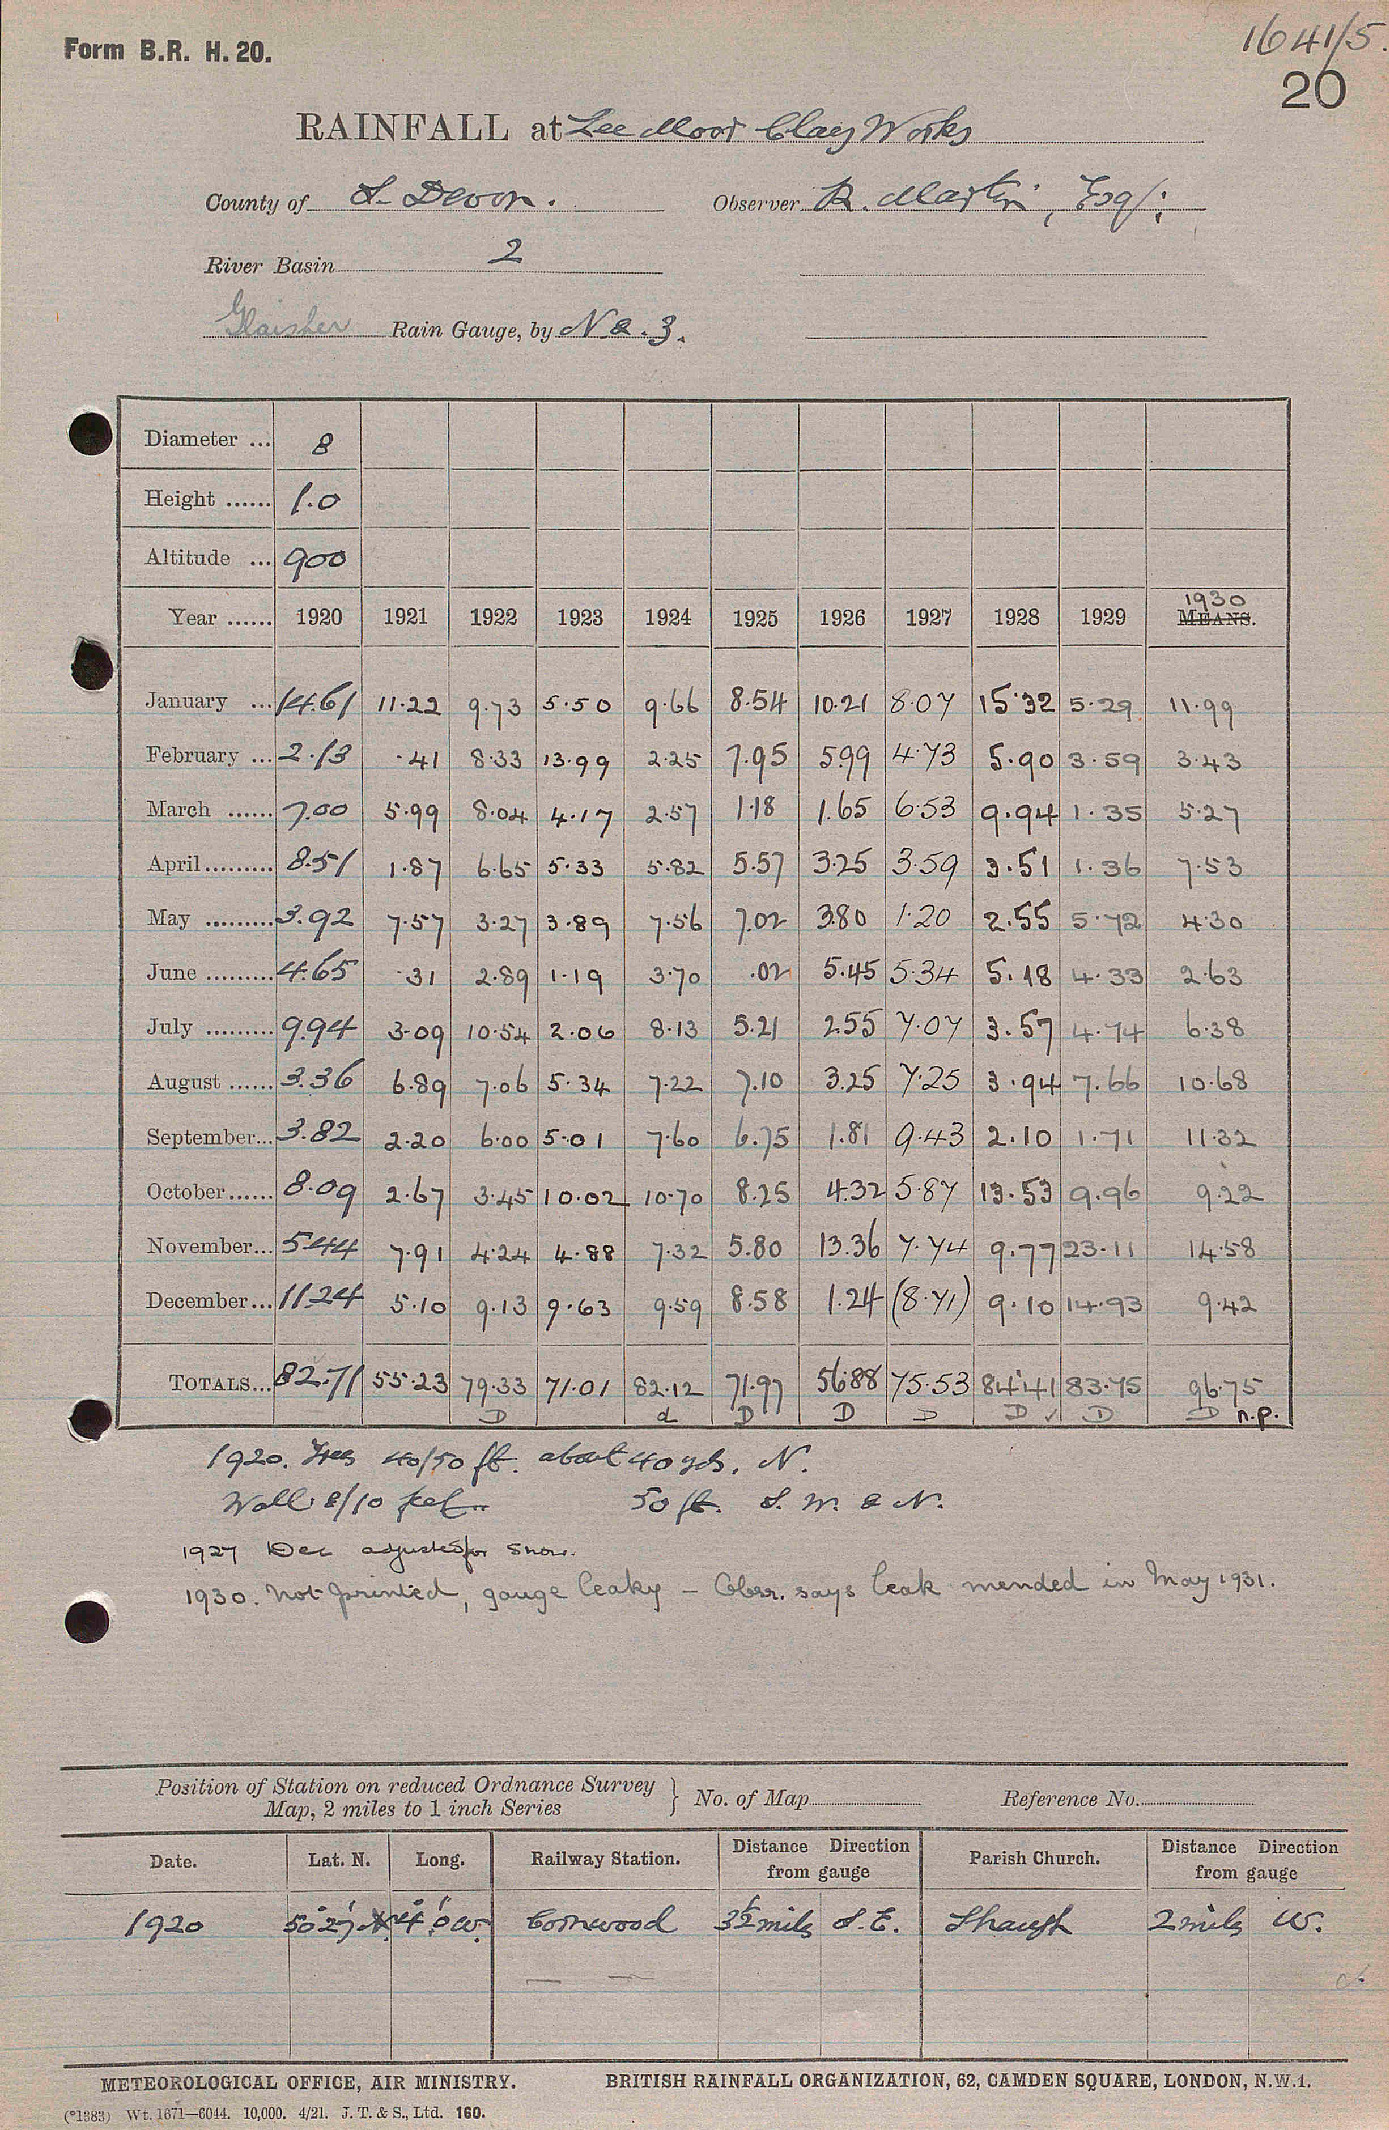 Form B.R. H. 20.
1641/5.
20
RAINFALL at Lee Moor Clay Works
County of S. Devon. Observer R. Martin, Esq;
River Basin 2
Glaisher Rain Gauge, by N & 3.
Diameter ... 8
Height ...... 1.0
Altitude ... 900
Year ...... 1920 1921 1922 1923 1924 1925 1926 1927 1928 1929 1930 MEANS.
January ... 14.61 11.22 9.73 5.50 9.66 8.54 10.21 8.07 15.32 5.29 11.99
February ... 2.13 .41 8.33 13.99 2.25 7.95 5.99 4.73 5.90 3.59 3.43
March ...... 7.00 5.99 8.04 4.17 2.57 1.18 1.65 6.53 9.94 1.35 5.27
April ......... 8.51 1.87 6.65 5.33 5.82 5.57 3.25 3.59 3.51 1.36 7.53
May ......... 3.92 7.57 3.27 3.89 7.56 7.02 3.80 1.20 2.55 5.72 4.30
June ......... 4.65 .31 2.89 1.19 3.70 .02 5.45 5.34 5.18 4.33 2.63
July ......... 9.94 3.09 10.54 2.06 8.13 5.21 2.55 7.07 3.57 4.74 6.38
August ...... 3.36 6.89 7.06 5.34 7.22 7.10 3.25 7.25 3.94 7.66 10.68
September... 3.82 2.20 6.00 5.01 7.60 6.75 1.81 9.43 2.10 1.71 11.32
October...... 8.09 2.67 3.45 10.02 10.70 8.25 4.32 5.87 13.53 9.96 9.22
November... 5.44 7.91 4.24 4.88 7.32 5.80 13.36 7.74 9.77 23.11 14.58
December... 11.24 5.10 9.13 9.63 9.59 8.58 1.24 (8.71) 9.10 14.93 9.42
TOTALS... 82.71 55.23 79.33 71.01 82.12 71.97 56.88 75.53 84.41 83.75 96.75
D d D D D D ✓ D D n.p.
1920. Trees 40/50 ft. about 40 yds. N.
Wall 8/10 feet 50 ft. S. W. & N.
1927 Dec adjusted for snow.
1930. Not printed, gauge leaky – Obsr. says leak mended in May 1931.
Position of Station on reduced Ordnance Survey
Map, 2 miles to 1 inch Series } No. of Map Reference No.
Date. Lat. N. Long. Railway Station. Distance from gauge Direction Parish Church. Distance from gauge Direction
1920 50°27' N. 4°0' W. Cornwood 3½ miles S.E. Shaugh 2 miles W.
METEOROLOGICAL OFFICE, AIR MINISTRY. BRITISH RAINFALL ORGANIZATION, 62, CAMDEN SQUARE, LONDON, N.W.1.
(*1383) Wt. 1671—6044. 10,000. 4/21. J. T. & S., Ltd. 160.